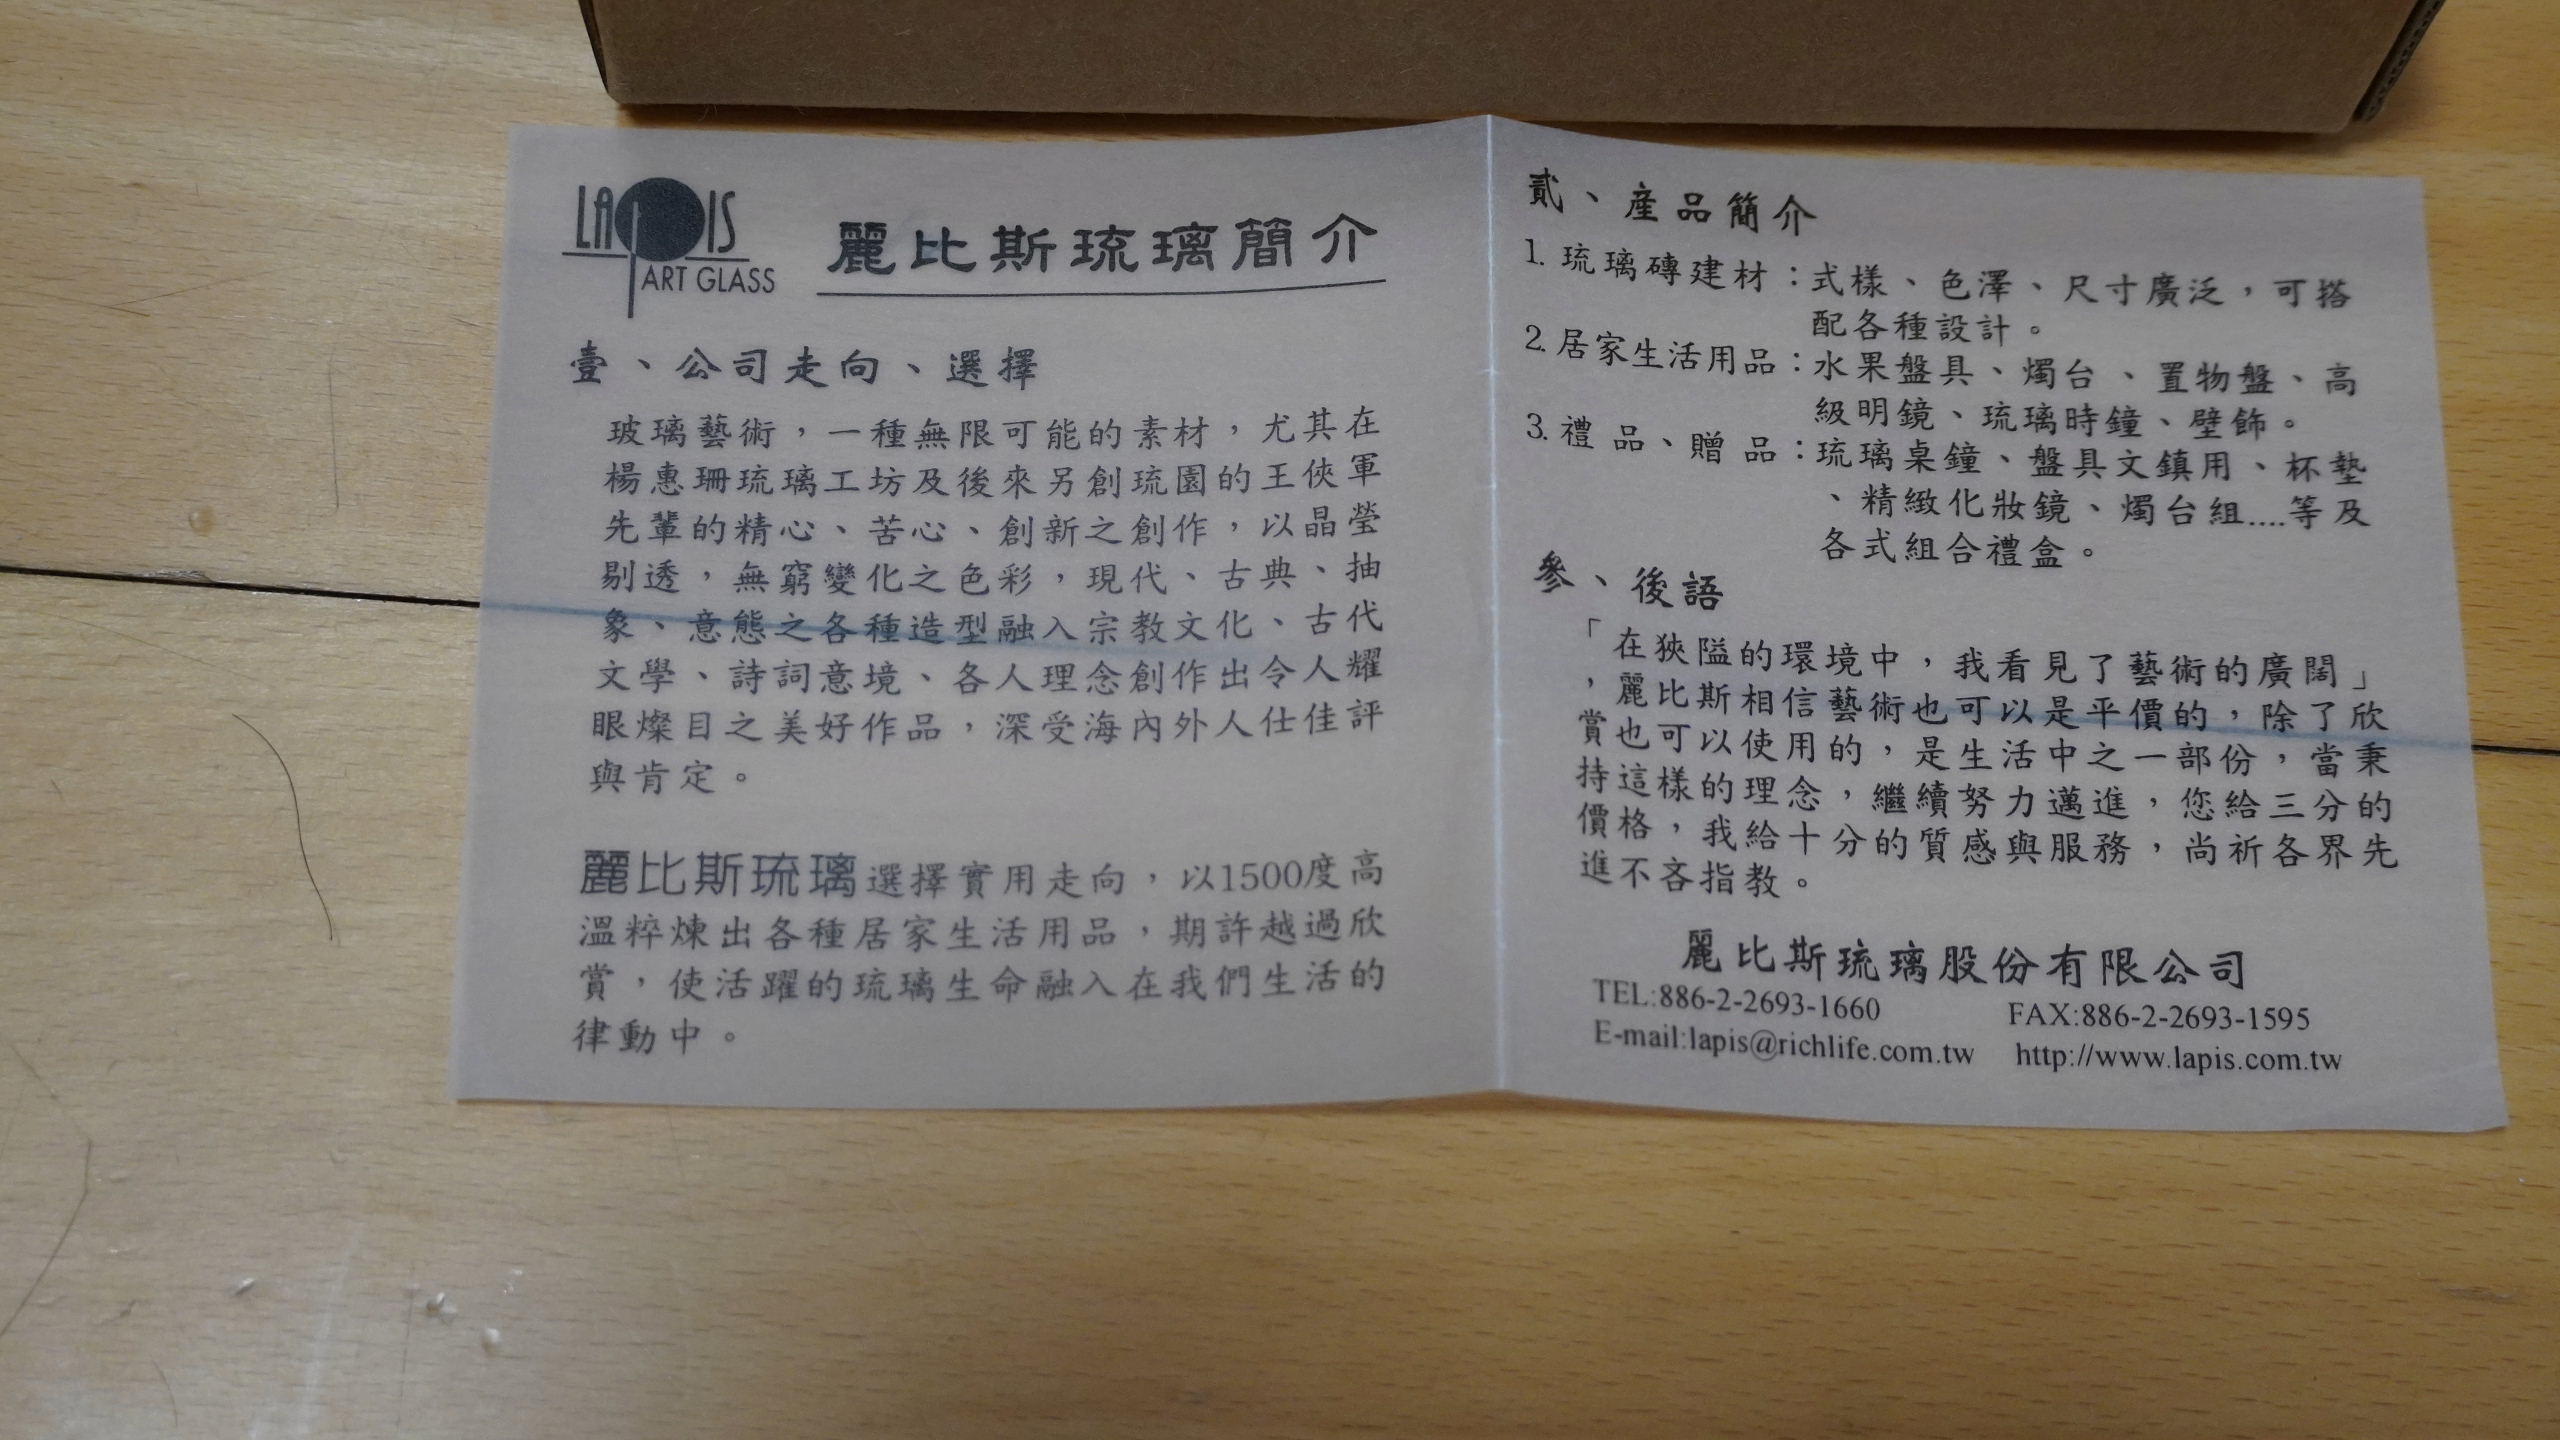 LAPIS
ART GLASS
麗比斯琉璃簡介
壹、公司走向、選擇
玻璃藝術，一種無限可能的素材，尤其在
楊惠珊琉璃工坊及後來另創琉園的王俠軍
先輩的精心、苦心、創新之創作，以晶瑩
剔透，無窮變化之色彩，現代、古典、抽
象、意態之各種造型融入宗教文化、古代
文學、詩詞意境、各人理念創作出令人耀
眼燦目之美好作品，深受海內外人仕佳評
與肯定。
麗比斯琉璃選擇實用走向，以1500度高
溫粹煉出各種居家生活用品，期許越過欣
賞，使活躍的琉璃生命融入在我們生活的
律動中。
貳、產品簡介
1. 琉璃磚建材：式樣、色澤、尺寸廣泛，可搭
配各種設計。
2. 居家生活用品：水果盤具、燭台、置物盤、高
級明鏡、琉璃時鐘、壁飾。
3. 禮品、贈品：琉璃桌鐘、盤具文鎮用、杯墊
、精緻化妝鏡、燭台組....等及
各式組合禮盒。
參、後語
「在狹隘的環境中，我看見了藝術的廣闊」
，麗比斯相信藝術也可以是平價的，除了欣
賞也可以使用的，是生活中之一部份，當秉
持這樣的理念，繼續努力邁進，您給三分的
價格，我給十分的質感與服務，尚祈各界先
進不吝指教。
麗比斯琉璃股份有限公司
TEL:886-2-2693-1660 FAX:886-2-2693-1595
E-mail:lapis@richlife.com.tw http://www.lapis.com.tw